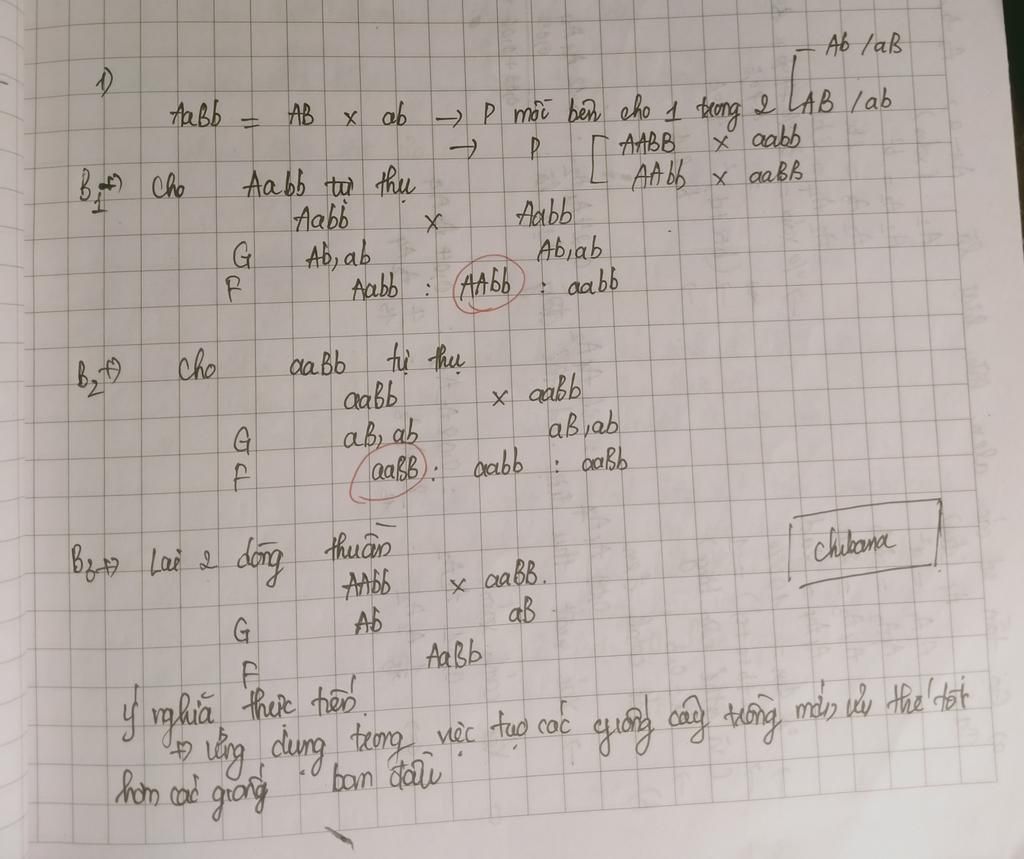 1)
Ab / aB
AaBb = AB x ab → P mỗi bên cho 1 trong 2 [ AB / ab
→ P [ AABB x aabb
AAbb x aaBB
B1 → Cho Aabb tự thụ
Aabb x Aabb
G Ab, ab Ab, ab
F Aabb : AAbb : aabb
B2 → Cho aaBb tự thụ
aaBb x aaBb
G aB, ab aB, ab
F aaBB : aabb : aaBb
B3 → Lai 2 dòng thuần
AAbb x aaBB.
G Ab aB
F AaBb
chibana
ý nghĩa thực tiễn.
→ ứng dụng trong việc tạo các giống cây trồng mới, ưu thế tốt
hơn các giống ban đầu